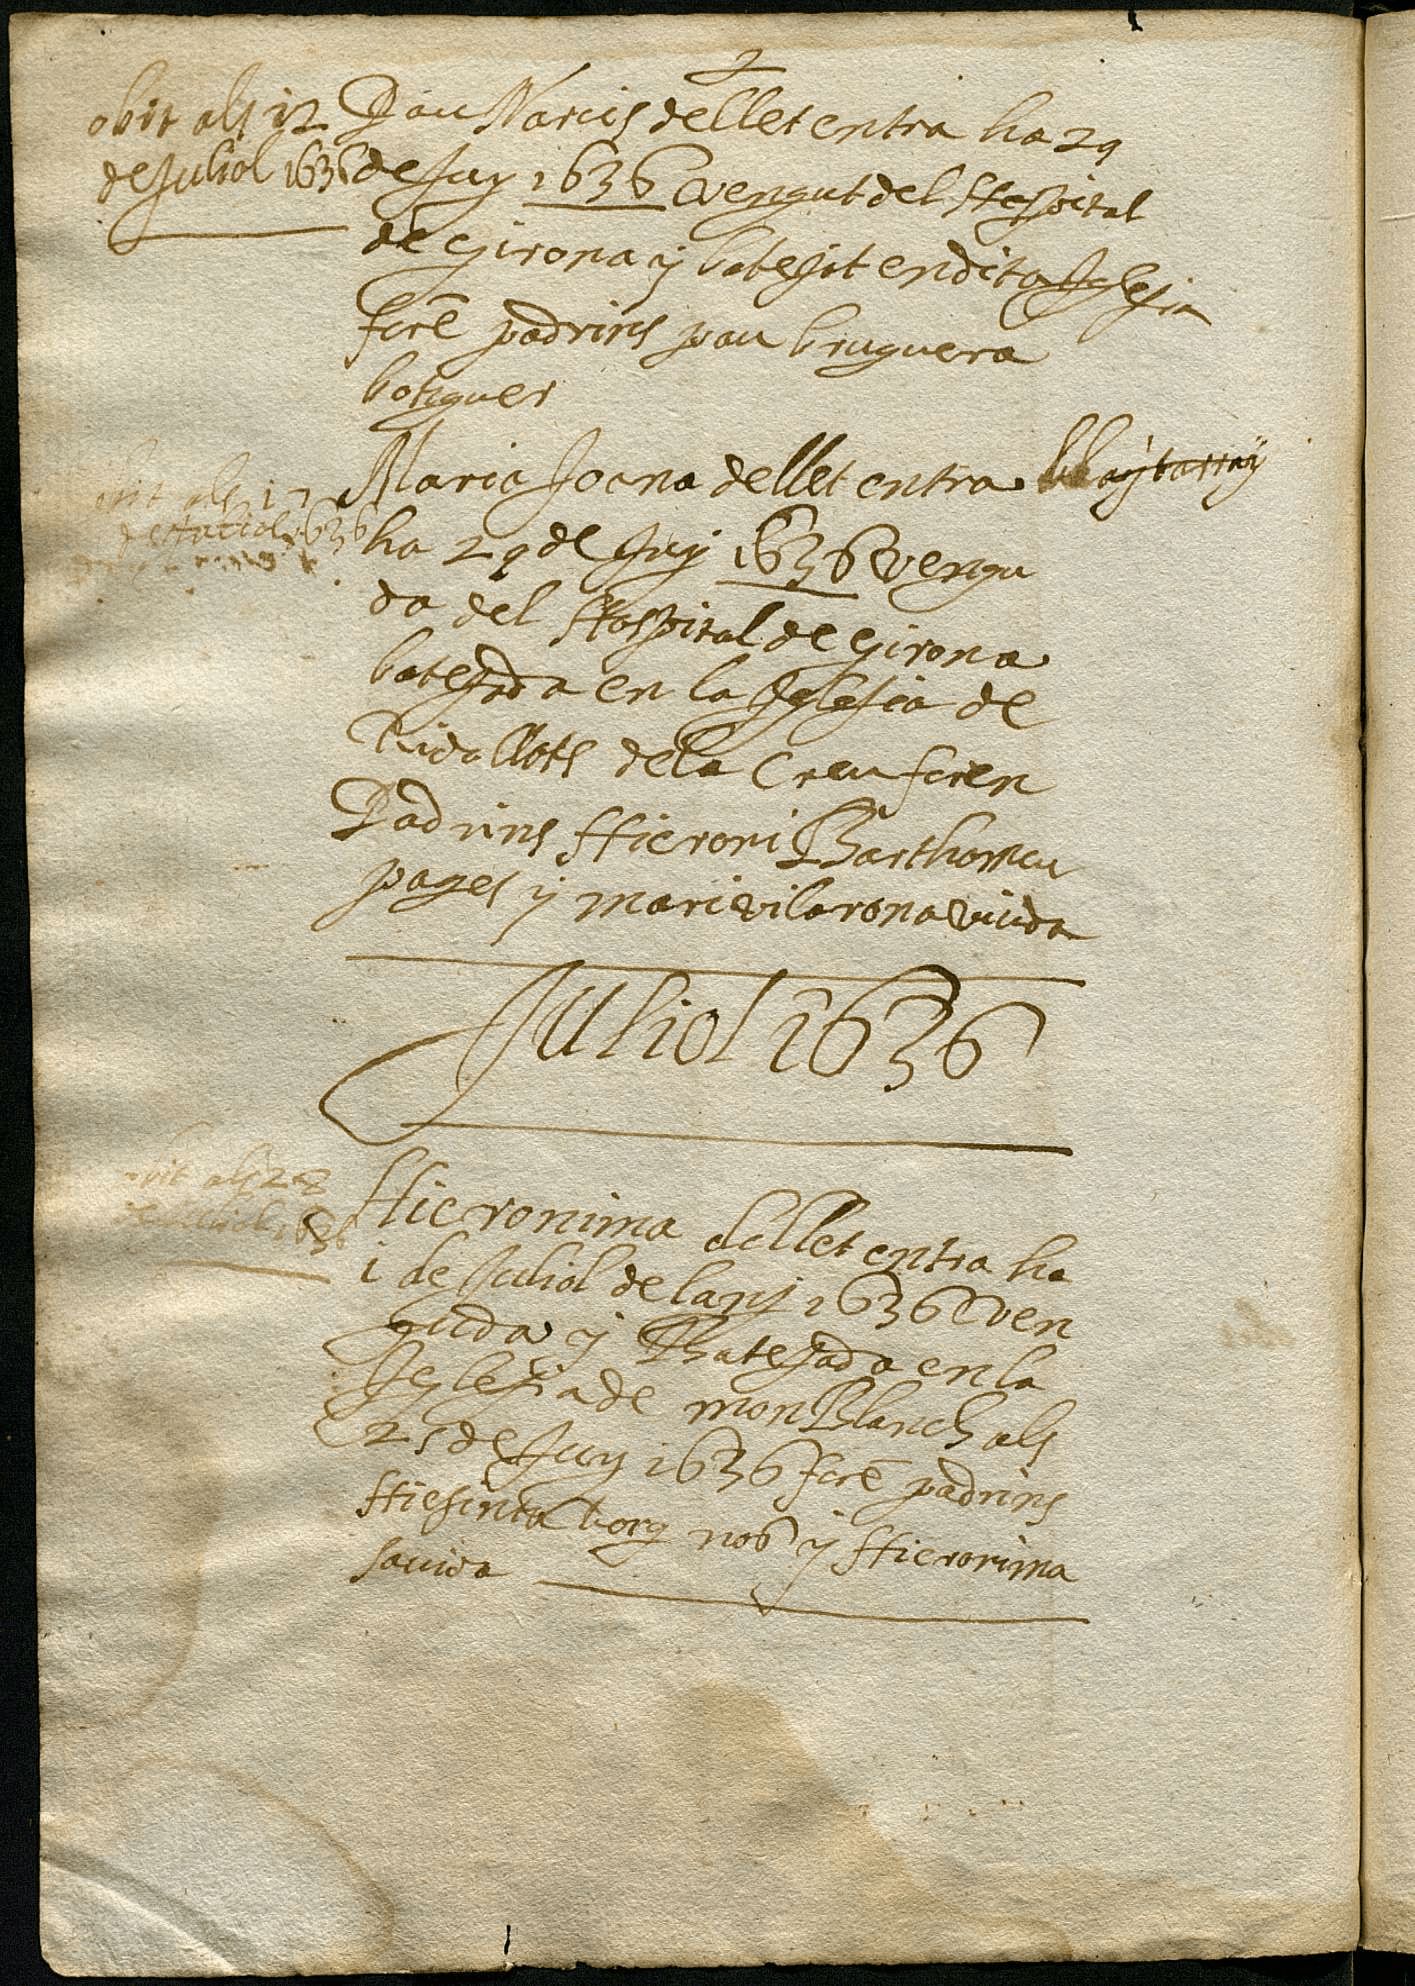 obit als 12
de Juliol 1636
Pau Narcis de llet entra ha 29
de Juy 1636 vengut del Hospital
de Girona y batejat en dita Iglesia
foré padrins pau bruguera
botiguer
obit als 17
de Juliol 1636
Maria Joana de llet entra
ha 29 de Juy 1636 vengu
da del Hospital de Girona
batejada en la Iglesia de
Ruidallots de la Creu foren
Padrins Hieroni Barthomeu
pages y mari vilarona viuda
Juliol 1636
obit als 28
de Juliol 1636
Hieronima de llet entra ha
1 de Juliol de lany 1636 ven
guda y Batejada en la
Iglesia de monBlanch als
25 de Juy 1636 foré padrins
Hiesinta borg nob y Hieronima
savida